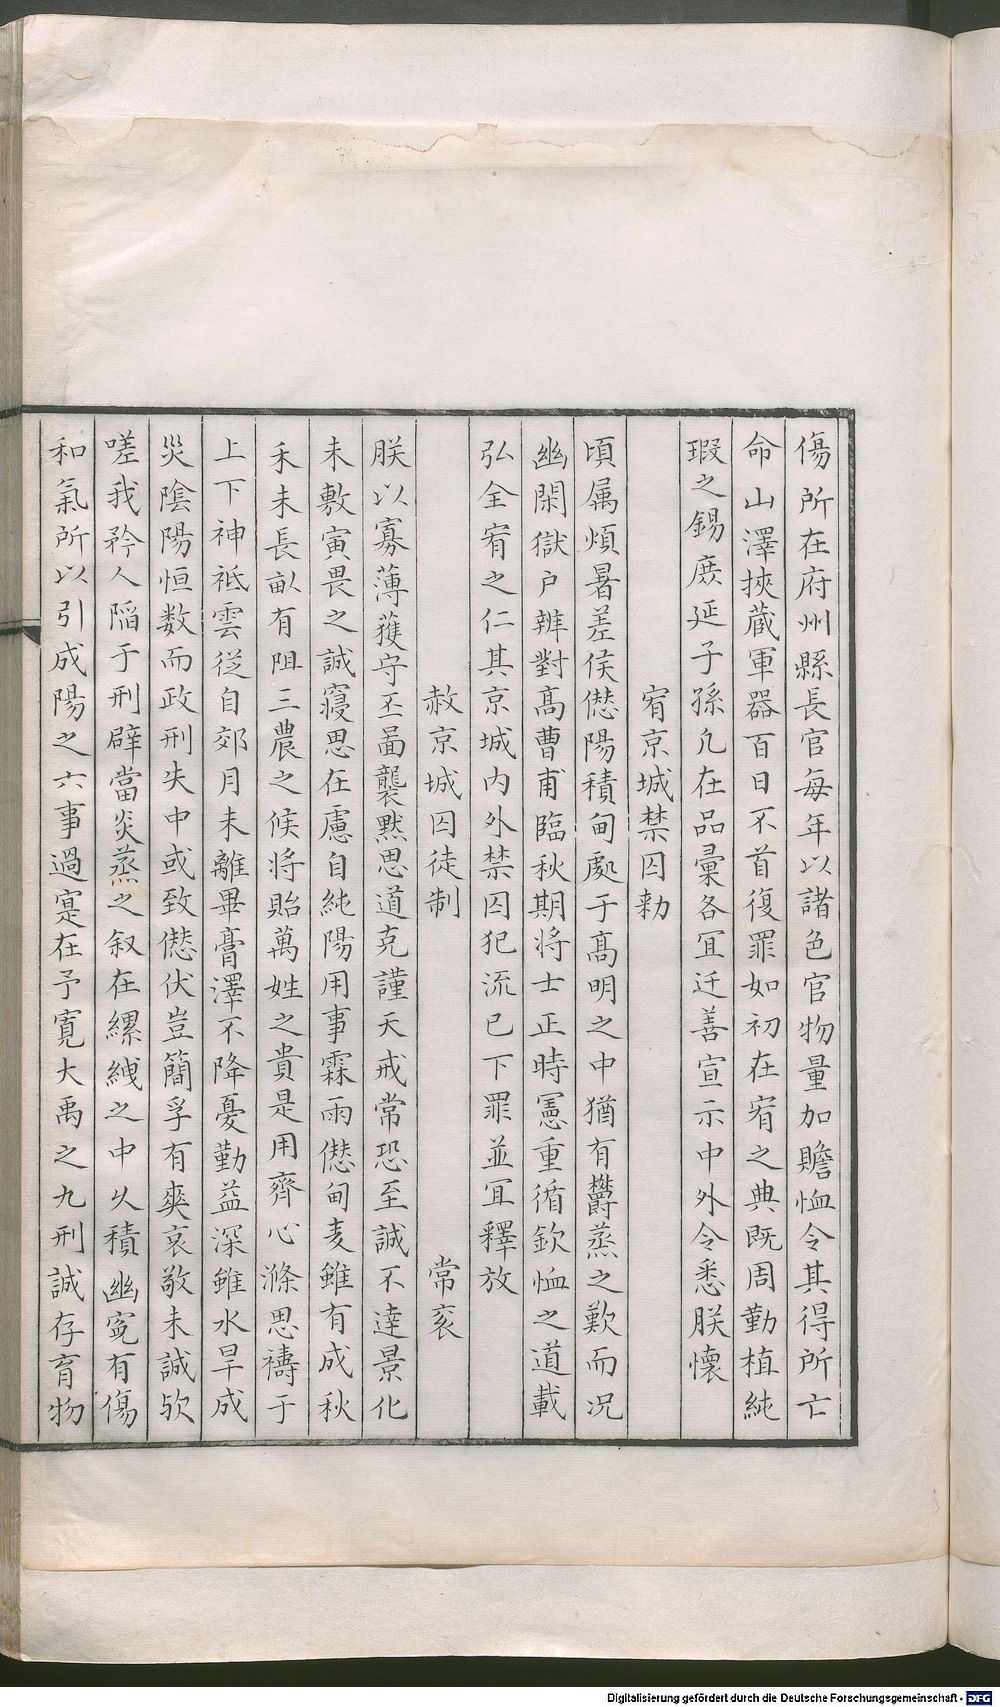 傷所在府州縣長官每年以諸色官物量加贍恤令其得所亡
命山澤挾蔵軍器百日不首復罪如初在宥之典既周勤植純
瑕之錫庶延子孫凢在品彙各冝迁善宣示中外令悉朕懷
宥京城禁囚勑
頃属煩暑差侯愆陽積甸處于髙明之中猶有欝蒸之歎而况
幽閑獄户辨對髙曹甫臨秋期将士正時憲重循欽恤之道載
弘全宥之仁其京城内外禁囚犯流已下罪並冝釋放
赦京城囚徒制 常衮
朕以寡薄獲守丕啚襲黙思道克謹天戒常恐至誠不逹景化
未敷寅畏之誠寢思在慮自純陽用事霖雨愆甸麦雖有成秋
禾未長畝有阻三農之候将貽萬姓之貴是用齊心滌思禱于
上下神祗雲從自郊月未離畢膏澤不降憂勤益深雖水旱成
災隂陽恒数而政刑失中或致愆伏豈簡孚有爽哀敬未誠欤
嗟我矜人陷于刑辟當炎蒸之叙在縲絏之中乆積幽寃有傷
和氣所以引成陽之六事過寔在予寛大禹之九刑誠存育物
Digitalisierung gefördert durch die Deutsche Forschungsgemeinschaft - DFG